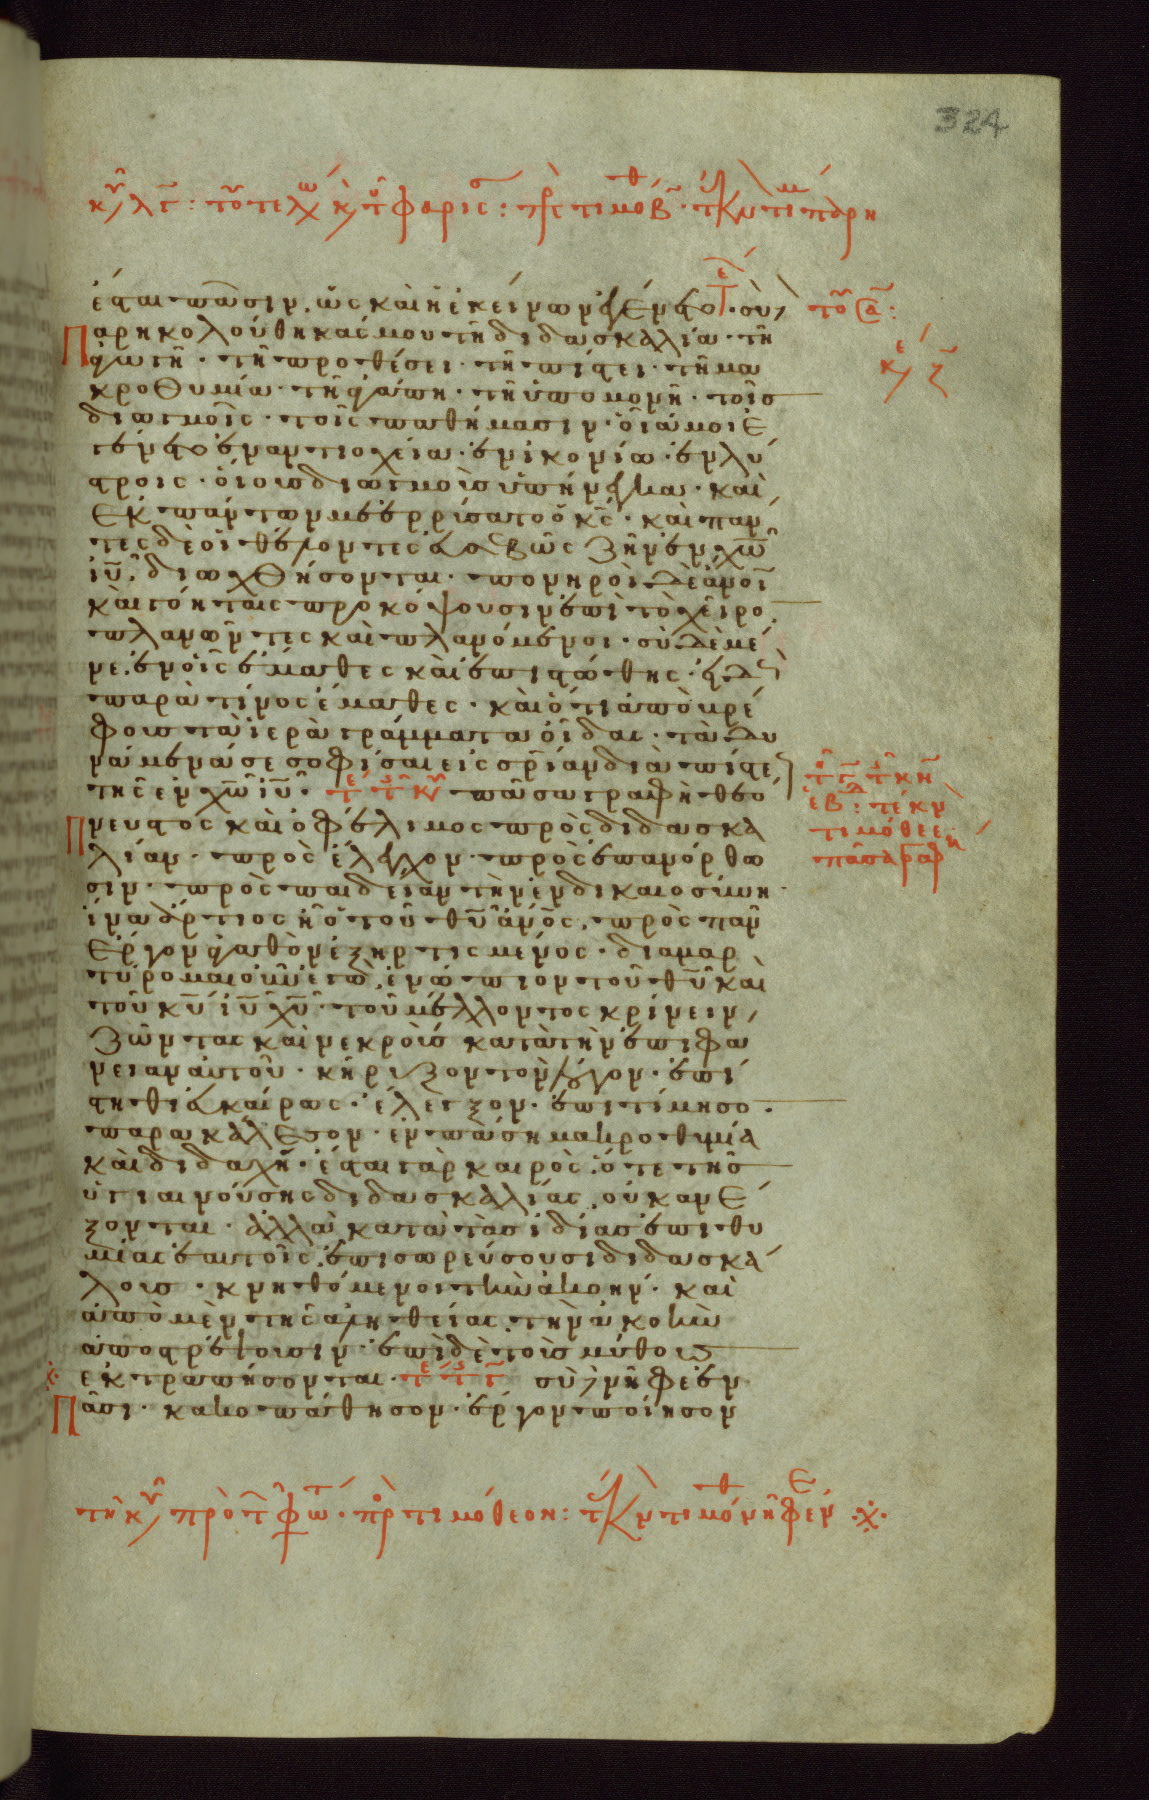 324
ἔσται πᾶσιν, ὡς καὶ ἡ ἐκείνων ἐγένετο· σὺ
Παρηκολούθηκάς μου τῆ διδασκαλία· τῆ
ἀγωγῆ· τῆ προθέσει· τῆ πίστει· τῆ μα
κροθυμία· τῆ ἀγάπη· τῆ ὑπομονῆ· τοῖς
διωγμοῖς· τοῖς παθήμασιν· οἷά μοι ἐ
γένετο ἐν ἀντιοχεία· ἐν ἰκονίω· ἐν λύ
στροις· οἵους διωγμοὺς ὑπήνεγκα· καὶ
ἐκ πάντων με ἐρρύσατο ὁ κς· καὶ πάν
τες δὲ οἱ θέλοντες εὐσεβῶς ζῆν ἐν χω
ιυ, διωχθήσονται· πονηροὶ δὲ ἄνοι
καὶ γόητες προκόψουσιν ἐπὶ τὸ χεῖρο
πλανῶντες καὶ πλανόμενοι· σὺ δὲ μέ
νε ἐν οἷς ἔμαθες καὶ ἐπιστώθης· εἰδὼς
παρὰ τίνος ἔμαθες· καὶ ὅτι ἀπὸ βρέ
φους τὰ ἱερὰ γράμματα οἶδας· τὰ δυ
νάμενά σε σοφίσαι εἰς σρίαν διὰ πίστε
τῆς ἐν χω ιυ· πᾶσα γραφὴ θεό
πνευστος καὶ ὀφέλιμος πρὸς διδασκα
λίαν· πρὸς ἔλεγχον· πρὸς ἐπανόρθω
σιν· πρὸς παιδείαν τὴν ἐν δικαιοσύνη·
ἵνα ἄρτιος ἦ ὁ τοῦ θυ ἄνος, πρὸς πᾶν
ἔργον ἀγαθὸν ἐξηρτισμένος· διαμαρ
τύρομαι οὖν ἐγὼ ἐνώπιον τοῦ θυ καὶ
τοῦ κυ ιυ χυ· τοῦ μέλλοντος κρίνειν
ζῶντας καὶ νεκροὺς κατὰ τὴν ἐπιφά
νειαν αὐτοῦ· κήρυξον τὸν λόγον· ἐπί
στηθι εὐκαίρως· ἔλεγξον· ἐπιτίμησο·
παρακάλεσον· ἐν πάση μακροθυμία
καὶ διδαχῆ· ἔσται γὰρ καιρὸς, ὅτε τῆς
ὑγιαινούσης διδασκαλίας, οὐκ ἀνέ
ξονται· ἀλλὰ κατὰ τὰς ἰδίας ἐπιθυ
μίας ἑαυτοῖς, ἐπισωρεύσουσι διδασκά
λους· κνηθόμενοι τὴν ἀκοήν· καὶ
ἀπὸ μὲν τῆς ἀληθείας, τὴν ἀκοὴν
ἀποστρέψουσιν· ἐπὶ δὲ τοὺς μύθους
ἐκτραπήσονται· σὺ νῆφε ἐν
Πᾶσι· κακοπάθησον· ἔργον ποίησον
τέκν
τιμόθεε
πᾶσα γραφ